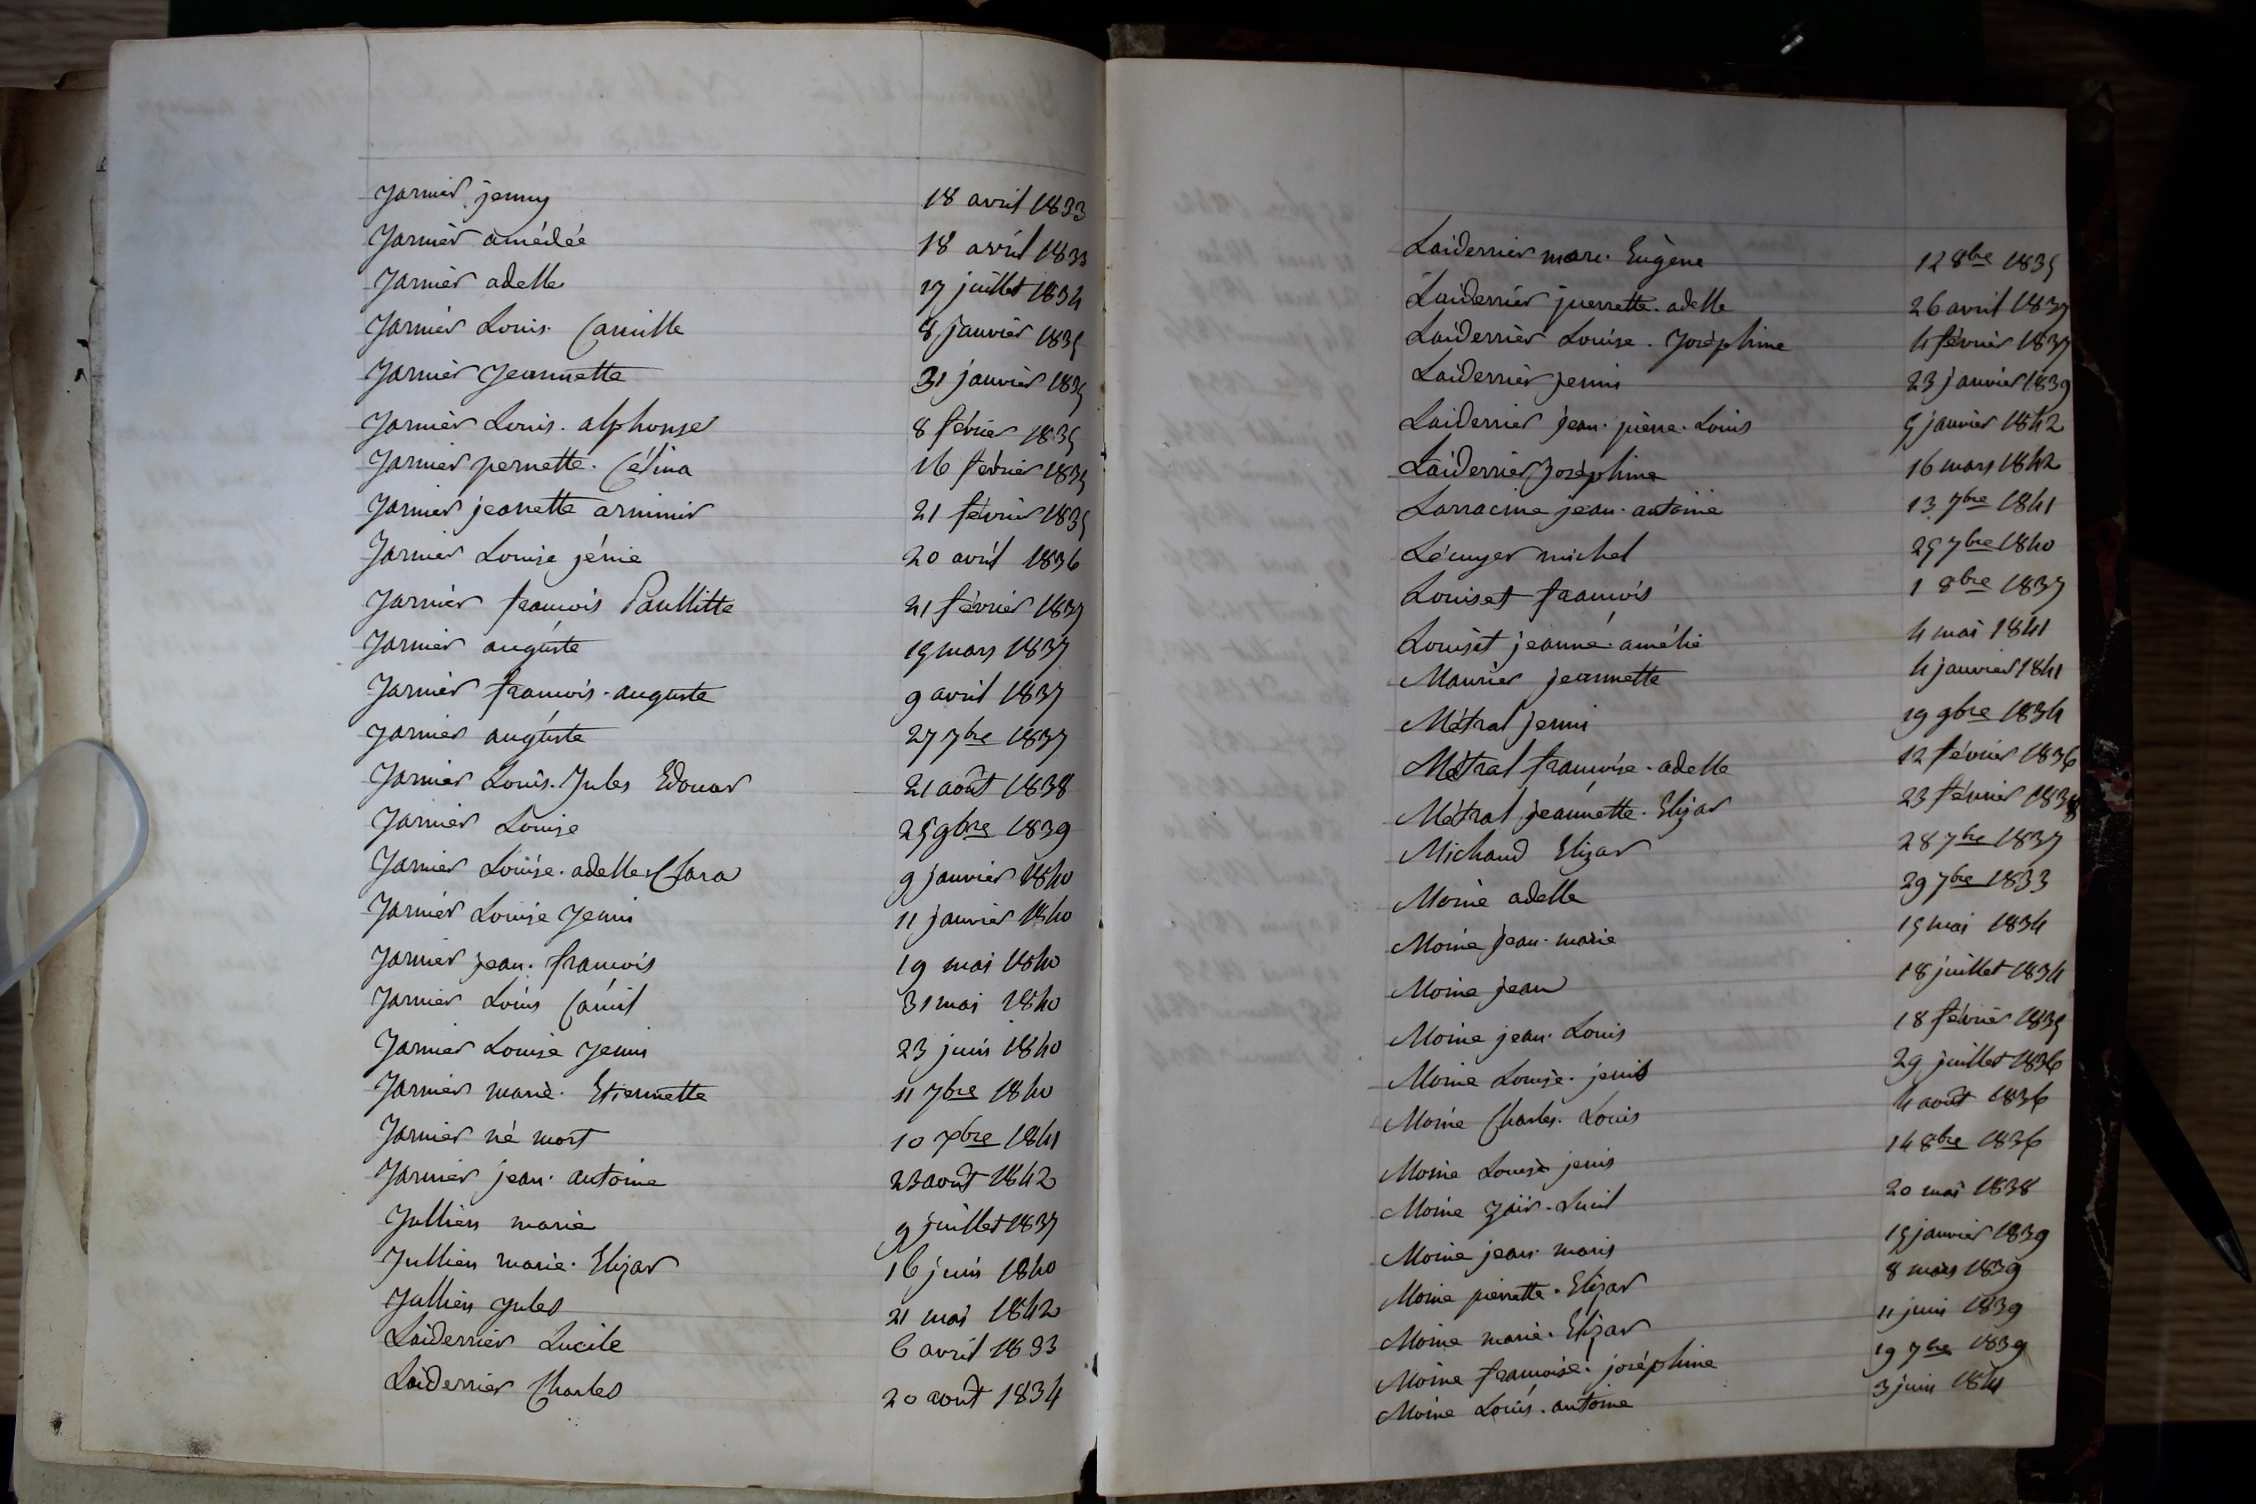 Jarnier jenny 18 avril 1833
Jarnier amédée 18 avril 1833
Jarnier adelle 17 juillet 1834
Jarnier Louis. Camille 8 janvier 1835
Jarnier Jeannette 31 janvier 1835
Jarnier Louis. alphonse 8 février 1835
Jarnier pernette. Célina 16 février 1835
Jarnier jeanette 21 février 1835
Jarnier Louise jénie 20 avril 1836
Jarnier francois Paullitte 21 février 1837
Jarnier auguste 15 mars 1837
Jarnier francois. auguste 9 avril 1837
Jarnier auguste 27 7bre 1837
Jarnier Louis. Jules Edouar 21 août 1838
Jarnier Louise 25 9bre 1839
Jarnier Louise. adelle. Clara 9 janvier 1840
Jarnier Louise Jenni 11 janvier 1840
Jarnier jean. francois 19 mai 1840
Jarnier Louis Camil 31 mai 1840
Jarnier Louise Jenni 23 juin 1840
Jarnier marie. Etiennette 11 7bre 1840
Jarnier né mort 10 7bre 1841
Jarnier jean. antoine 23 août 1842
Jullien marie 9 juillet 1837
Jullien marie. Elizar 16 juin 1840
Jullien Jules 21 mai 1842
Laiderrier Lucile 6 avril 1833
Laiderrier Charles 20 août 1834
Laiderrier marc. Eugène 12 8bre 1835
Laiderrier pierrette. adelle 26 avril 1837
Laiderrier Louise. Joséphine 4 février 1837
Laiderrier jenni 23 janvier 1839
Laiderrier jean. pierre. Louis 5 janvier 1842
Laiderrier Joséphine 16 mars 1842
Larracine jean. antoine 13 7bre 1841
Lécuyer michel 25 7bre 1840
Louiset francois 1 8bre 1837
Louiset jeanne. amélie 4 mai 1841
Maurier jeannette 4 janvier 1841
Métral jenni 19 9bre 1834
Métral francoise. adelle 12 février 1836
Métral jeannette. Elizar 23 février 1838
Michaud Elizar 28 7bre 1837
Moine adelle 29 7bre 1833
Moine jean. marie 15 mai 1834
Moine jean 18 juillet 1834
Moine jean. Louis 18 février 1835
Moine Louise. jenis 29 juillet 1836
Moine Charles. Louis 4 août 1836
Moine Louise jenis 14 8bre 1836
Moine Lucil 20 mai 1838
Moine jean. maris 15 janvier 1839
Moine pierrette. Elizar 8 mars 1839
Moine marie. Elizar 11 juin 1839
Moine francoise. joséphine 19 7bre 1839
Moine Louis. antoine 3 juin 1841